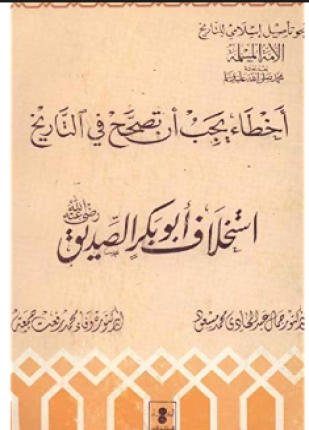 نحو تأصيل إسلامي للتاريخ
الأمة المسلمة
محمد صلى الله عليه وسلم
أخطاء يجب أن تصحح في التاريخ
استخلاف أبو بكر الصديق رضي الله عنه
الدكتور جمال عبد الهادي محمد مسعود
الدكتورة وفاء محمد رفعت جمعة